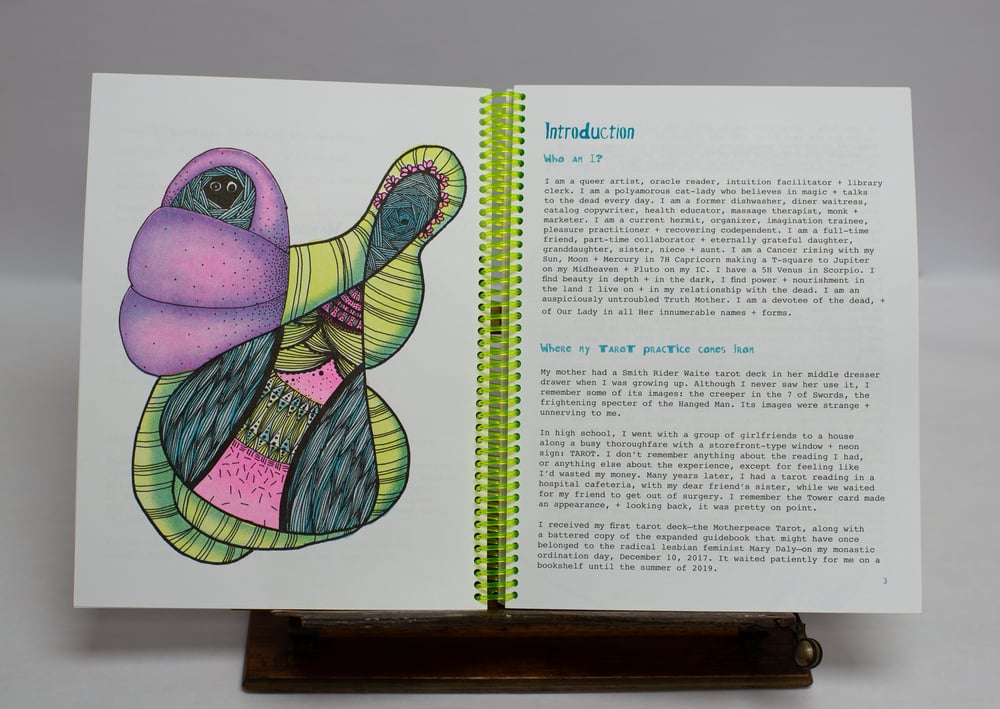 Introduction
Who am I?
I am a queer artist, oracle reader, intuition facilitator + library
clerk. I am a polyamorous cat-lady who believes in magic + talks
to the dead every day. I am a former dishwasher, diner waitress,
catalog copywriter, health educator, massage therapist, monk +
marketer. I am a current hermit, organizer, imagination trainee,
pleasure practitioner + recovering codependent. I am a full-time
friend, part-time collaborator + eternally grateful daughter,
granddaughter, sister, niece + aunt. I am a Cancer rising with my
Sun, Moon + Mercury in 7H Capricorn making a T-square to Jupiter
on my Midheaven + Pluto on my IC. I have a 5H Venus in Scorpio. I
find beauty in depth + in the dark, I find power + nourishment in
the land I live on + in my relationship with the dead. I am an
auspiciously untroubled Truth Mother. I am a devotee of the dead, +
of Our Lady in all Her innumerable names + forms.
Where my Tarot practice comes from
My mother had a Smith Rider Waite tarot deck in her middle dresser
drawer when I was growing up. Although I never saw her use it, I
remember some of its images: the creeper in the 7 of Swords, the
frightening specter of the Hanged Man. Its images were strange +
unnerving to me.
In high school, I went with a group of girlfriends to a house
along a busy thoroughfare with a storefront-type window + neon
sign: TAROT. I don't remember anything about the reading I had,
or anything else about the experience, except for feeling like
I'd wasted my money. Many years later, I had a tarot reading in a
hospital cafeteria, with my dear friend's sister, while we waited
for my friend to get out of surgery. I remember the Tower card made
an appearance, + looking back, it was pretty on point.
I received my first tarot deck—the Motherpeace Tarot, along with
a battered copy of the expanded guidebook that might have once
belonged to the radical lesbian feminist Mary Daly—on my monastic
ordination day, December 10, 2017. It waited patiently for me on a
bookshelf until the summer of 2019.
3